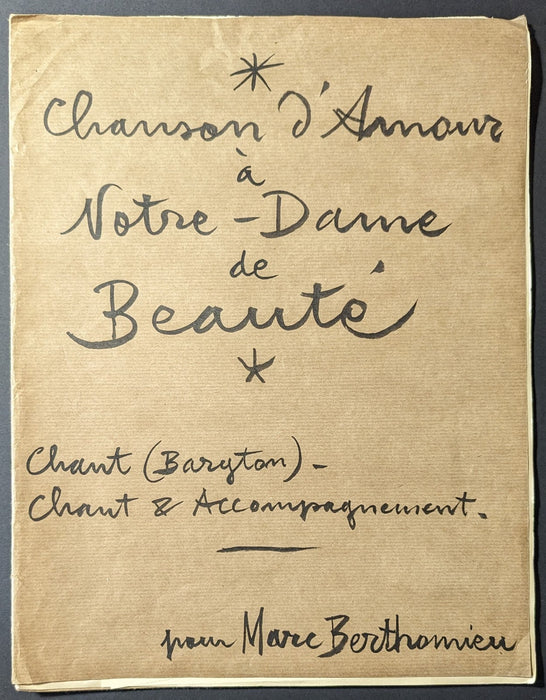 *
Chanson d'Amour
à
Notre-Dame
de
Beauté
*
Chant (Baryton)-
Chant & Accompagnement.
pour Marc Berthomieu